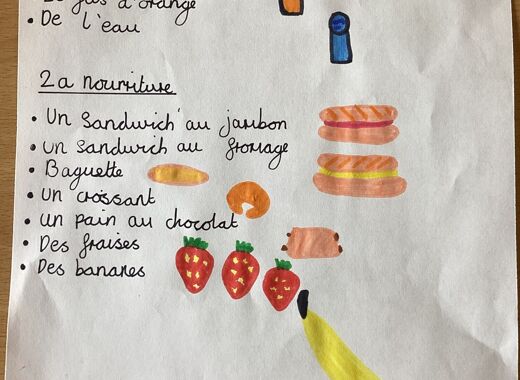 jus d'orange
• De l'eau
La nourriture
• Un sandwich au jambon
• un sandwich au fromage
• Baguette
• un croissant
• un pain au chocolat
• Des fraises
• Des bananes